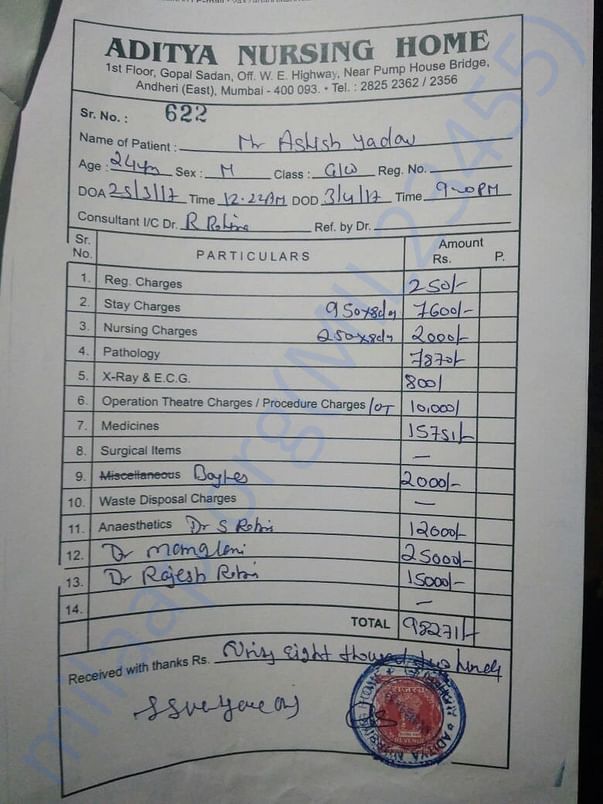 ADITYA NURSING HOME
1st Floor, Gopal Sadan, Off. W. E. Highway, Near Pump House Bridge,
Andheri (East), Mumbai - 400 093. • Tel. : 2825 2362 / 2356
Sr. No. : 622
Name of Patient : Mr Ashish Yadav
Age : 24yrs Sex : M Class : G/W Reg. No.
DOA 25/3/17 Time 12.22AM DOD 3/4/17 Time 9.00PM
Consultant I/C Dr. R Ref. by Dr.
Sr. No. PARTICULARS Amount Rs. P.
1. Reg. Charges 250/-
2. Stay Charges 950x8day 7600/-
3. Nursing Charges 250x8day 2000/-
4. Pathology 7870/-
5. X-Ray & E.C.G. 800/
6. Operation Theatre Charges / Procedure Charges / OT 10,000/
7. Medicines 15751/-
8. Surgical Items —
9. Miscellaneous 2000/-
10. Waste Disposal Charges —
11. Anaesthetics Dr S 12000/-
12. Dr 25000/-
13. Dr Rajesh 15000/-
14. —
TOTAL 98271/-
Received with thanks Rs. eight thousand two
ADITYA NURSING HOME
REVENUE
milaap.org(MIL23455)